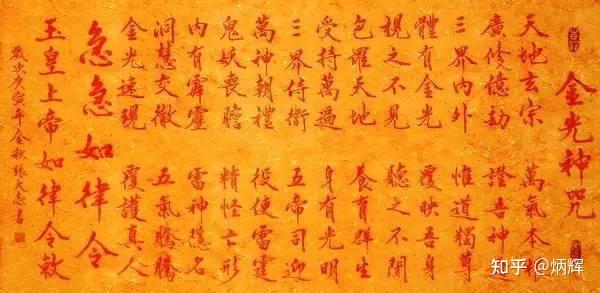 金光神咒
天地玄宗 萬氣本根
廣修億劫 證吾神通
三界內外 惟道獨尊
體有金光 覆映吾身
視之不見 聽之不聞
包羅天地 養育群生
受持萬遍 身有光明
三界侍衛 五帝司迎
萬神朝禮 役使雷霆
鬼妖喪膽 精怪亡形
內有霹靂 雷神隱名
洞慧交徹 五氣騰騰
金光速現 覆護真人
急急如律令
玉皇上帝如律令敕
歲次庚寅年金秋張書
知乎 @炳辉